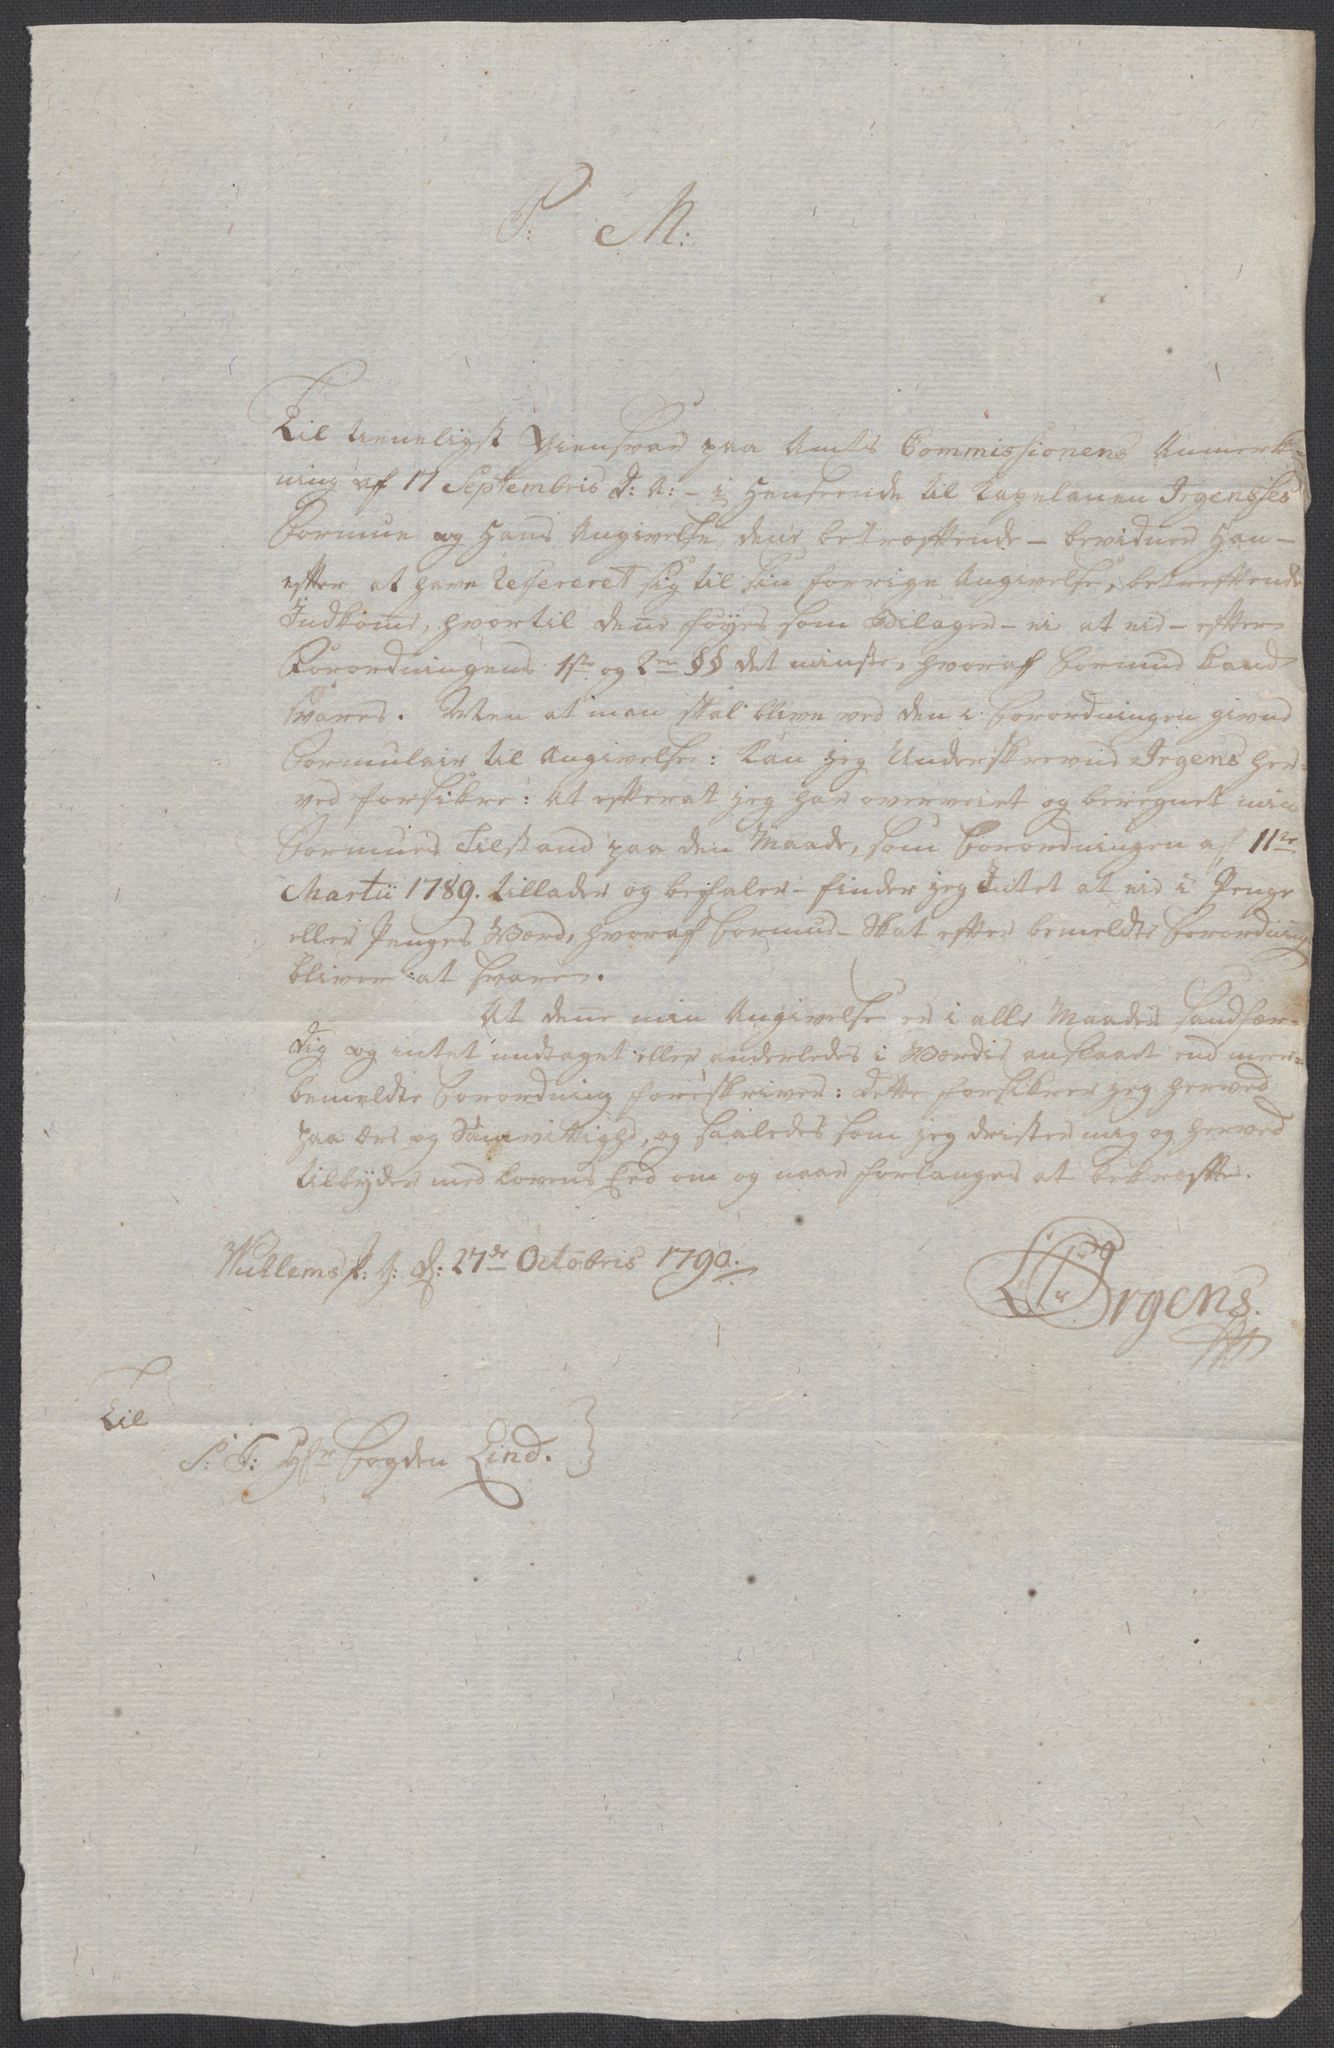 P: M:
Til tieneligst Giensvar paa Amts Commissionens Anmerk-
ning af 17 Septembris d: A: - i Henseende til Capelanen Irgenses
Formue og Hans Angivelse dene betræffende -
efter at have Refereret sig til sin forrige Angivelse, betreffende
Indkomst, hvortil dene føyes som Bilager - ei at eie - efter
Forordningens 1ste og 2en §§ det minste, hvoraf Formue kand
svares. Men at man skal blive ved den i Forordningen givne
Formulair til Angivelse: Kan jeg Underskrevne Irgens her-
ved forsikre: At efterat jeg har overveiet og beregnet min
Formues Tilstand paa den Maade, som Forordningen af 11te
Martii 1789. tillader og befaler - finder jeg Intet at eie i Penge
eller Penges Værd, hvoraf Formue-Skat efter bemeldte Forordning
bliver at svare.
At dene min Angivelse er i alle Maader sandfær-
dig og intet undtaget eller anderledes i Værdie anslaaet end meer-
bemeldte Forordning foreskriver: dette forsikrer jeg herved
paa Ære og Samvittighd, og saaledes som jeg drister mig og herved
tilbyder med Lovens Eed om og naar forlanges at bekræfte.
d: 27de Octobris 1790.
Irgens.
Til
S: T: Hr Fogden Lind.